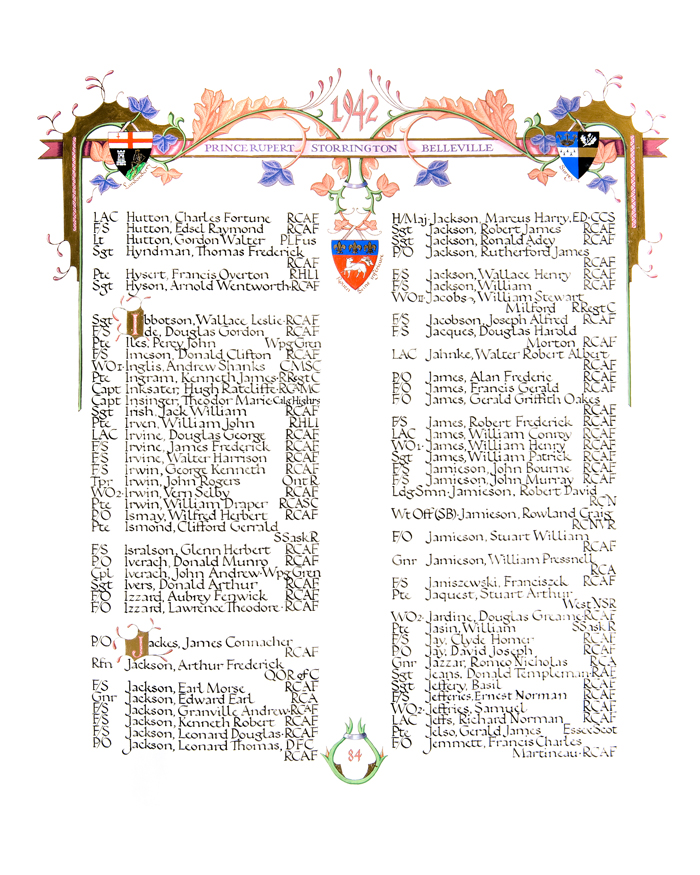 1942
PRINCE RUPERT STORRINGTON BELLEVILLE
LAC Hutton, Charles Fortune RCAF
F/S Hutton, Edsel Raymond RCAF
Lt Hutton, Gordon Walter PLFus
Sgt Hyndman, Thomas Frederick
RCAF
Pte Hysert, Francis Overton RHLI
Sgt Hyson, Arnold Wentworth-RCAF
Sgt Ibbotson, Wallace Leslie-RCAF
F/S Ide, Douglas Gordon RCAF
Pte Iles, Percy John WpgGren
F/S Imeson, Donald Clifton RCAF
WO1-Inglis, Andrew Shanks CMSC
Pte Ingram, Kenneth James-RRegtC
Capt Inksater, Hugh Ratcliffe-RCAMC
Capt Insinger, Theodor Marie-CalgHighrs
Sgt Irish, Jack William RCAF
Pte Irven, William John RHLI
LAC Irvine, Douglas George RCAF
F/S Irvine, James Frederick RCAF
F/S Irvine, Walter Harrison RCAF
F/S Irwin, George Kenneth RCAF
Tpr Irwin, John Rogers OntR
WO2-Irwin, Vern Selby RCAF
Pte Irwin, William Draper RCASC
P/O Ismay, Wilfred Herbert RCAF
Pte Ismond, Clifford Gerrald
SSaskR
F/S Isralson, Glenn Herbert RCAF
P/O Iverach, Donald Munro RCAF
Cpl Iverach, John Andrew-WpgGren
Sgt Ivers, Donald Arthur RCAF
F/O Izzard, Aubrey Fenwick RCAF
F/O Izzard, Lawrence Theodore-RCAF
P/O Jackes, James Connacher
RCAF
Rfn Jackson, Arthur Frederick
QOR of C
F/S Jackson, Earl Morse RCAF
Gnr Jackson, Edward Earl RCA
F/S Jackson, Granville Andrew-RCAF
F/S Jackson, Kenneth Robert RCAF
F/S Jackson, Leonard Douglas-RCAF
P/O Jackson, Leonard Thomas, DFC
RCAF
H/Maj-Jackson, Marcus Harry, ED-CCS
Sgt Jackson, Robert James RCAF
Sgt Jackson, Ronald Adey RCAF
P/O Jackson, Rutherford James
RCAF
F/S Jackson, Wallace Henry RCAF
F/S Jackson, William RCAF
WO2-Jacobs, William Stewart
Milford RRegtC
F/S Jacobson, Joseph Alfred RCAF
F/S Jacques, Douglas Harold
Morton, RCAF
LAC Jahnke, Walter Robert Albert
RCAF
P/O James, Alan Frederic RCAF
F/O James, Francis Gerald RCAF
F/O James, Gerald Griffith Oakes
RCAF
F/S James, Robert Frederick RCAF
LAC James, William Conroy RCAF
WO1-James, William Henry RCAF
Sgt James, William Patrick RCAF
F/S Jamieson, John Bourne RCAF
F/S Jamieson, John Murray RCAF
LdgSmn-Jamieson, Robert David
RCN
Wt Off (SB)-Jamieson, Rowland Craig
RCNVR
F/O Jamieson, Stuart William
RCAF
Gnr Jamieson, William Pressnell
RCA
F/S Janiszewski, Franciszek RCAF
Pte Jaquest, Stuart Arthur
WestNSR
WO2-Jardine, Douglas Greame-RCAF
Pte Jasin, William SSaskR
F/S Jay, Clyde Homer RCAF
P/O Jay, David Joseph RCAF
Gnr Jazzar, Romeo Nicholas RCA
Sgt Jeans, Donald Templeman-RAF
Sgt Jeffery, Basil RCAF
F/S Jefferies, Ernest Norman RCAF
WO2-Jeffries, Samuel RCAF
LAC Jeffs, Richard Norman RCAF
Pte Jelso, Gerald James EssexScot
F/O Jemmett, Francis Charles
Martineau-RCAF
84